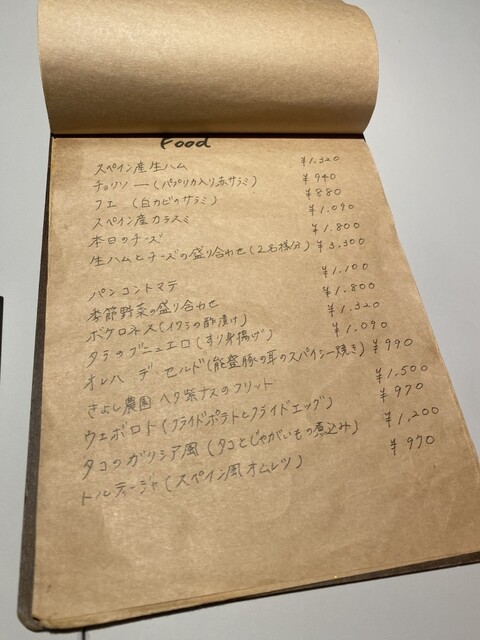 Food
スペイン産生ハム ¥1,320
チョリソー (パプリカ入り赤サラミ) ¥940
フエ (白カビのサラミ) ¥880
スペイン産カラスミ ¥1,090
本日のチーズ ¥1,800
生ハムとチーズの盛り合わせ (2名様分) ¥3,300
パンコントマテ ¥1,100
季節野菜の盛り合わせ ¥1,800
ボケロネス (イワシの酢漬け) ¥1,320
タラのブニュエロ (すり身揚げ) ¥1,090
オレハ デ セルド (能登豚の耳のスパイシー焼き) ¥990
きよし農園 ヘタ紫ナスのフリット ¥1,500
ウエボロト (フライドポテトとフライドエッグ) ¥970
タコのガリシア風 (タコとじゃがいもの煮込み) ¥1,200
トルティージャ (スペイン風オムレツ) ¥970